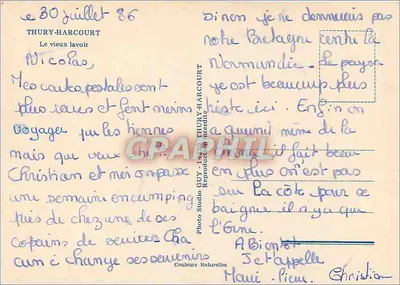 Le 30 juillet 86
THURY-HARCOURT
Le vieux lavoir
Nicolas,
Mes cartes postales sont
plus rares et font moins
voyager que les tiennes
mais que veux tu!!
Christian et moi on passe
une semaine en camping
près de chez une de ses
copains de service. Cha
cun échange ses souvenirs
Photo Studio GUY - 14220 THURY-HARCOURT
Reproduction interdite
Couleurs Naturelles
CPAPHIL
sinon je ne donnerais pas
notre Bretagne contre la
Normandie. Le paysa
ge est beaucoup plus
triste ici. Enfin on
a quand même de la
il fait beau
en plus on est pas
sur la côte pour se
baigner il n'y a que
l'Orne.
A Bientôt
Je t'appelle
Marie-Pierre Christian